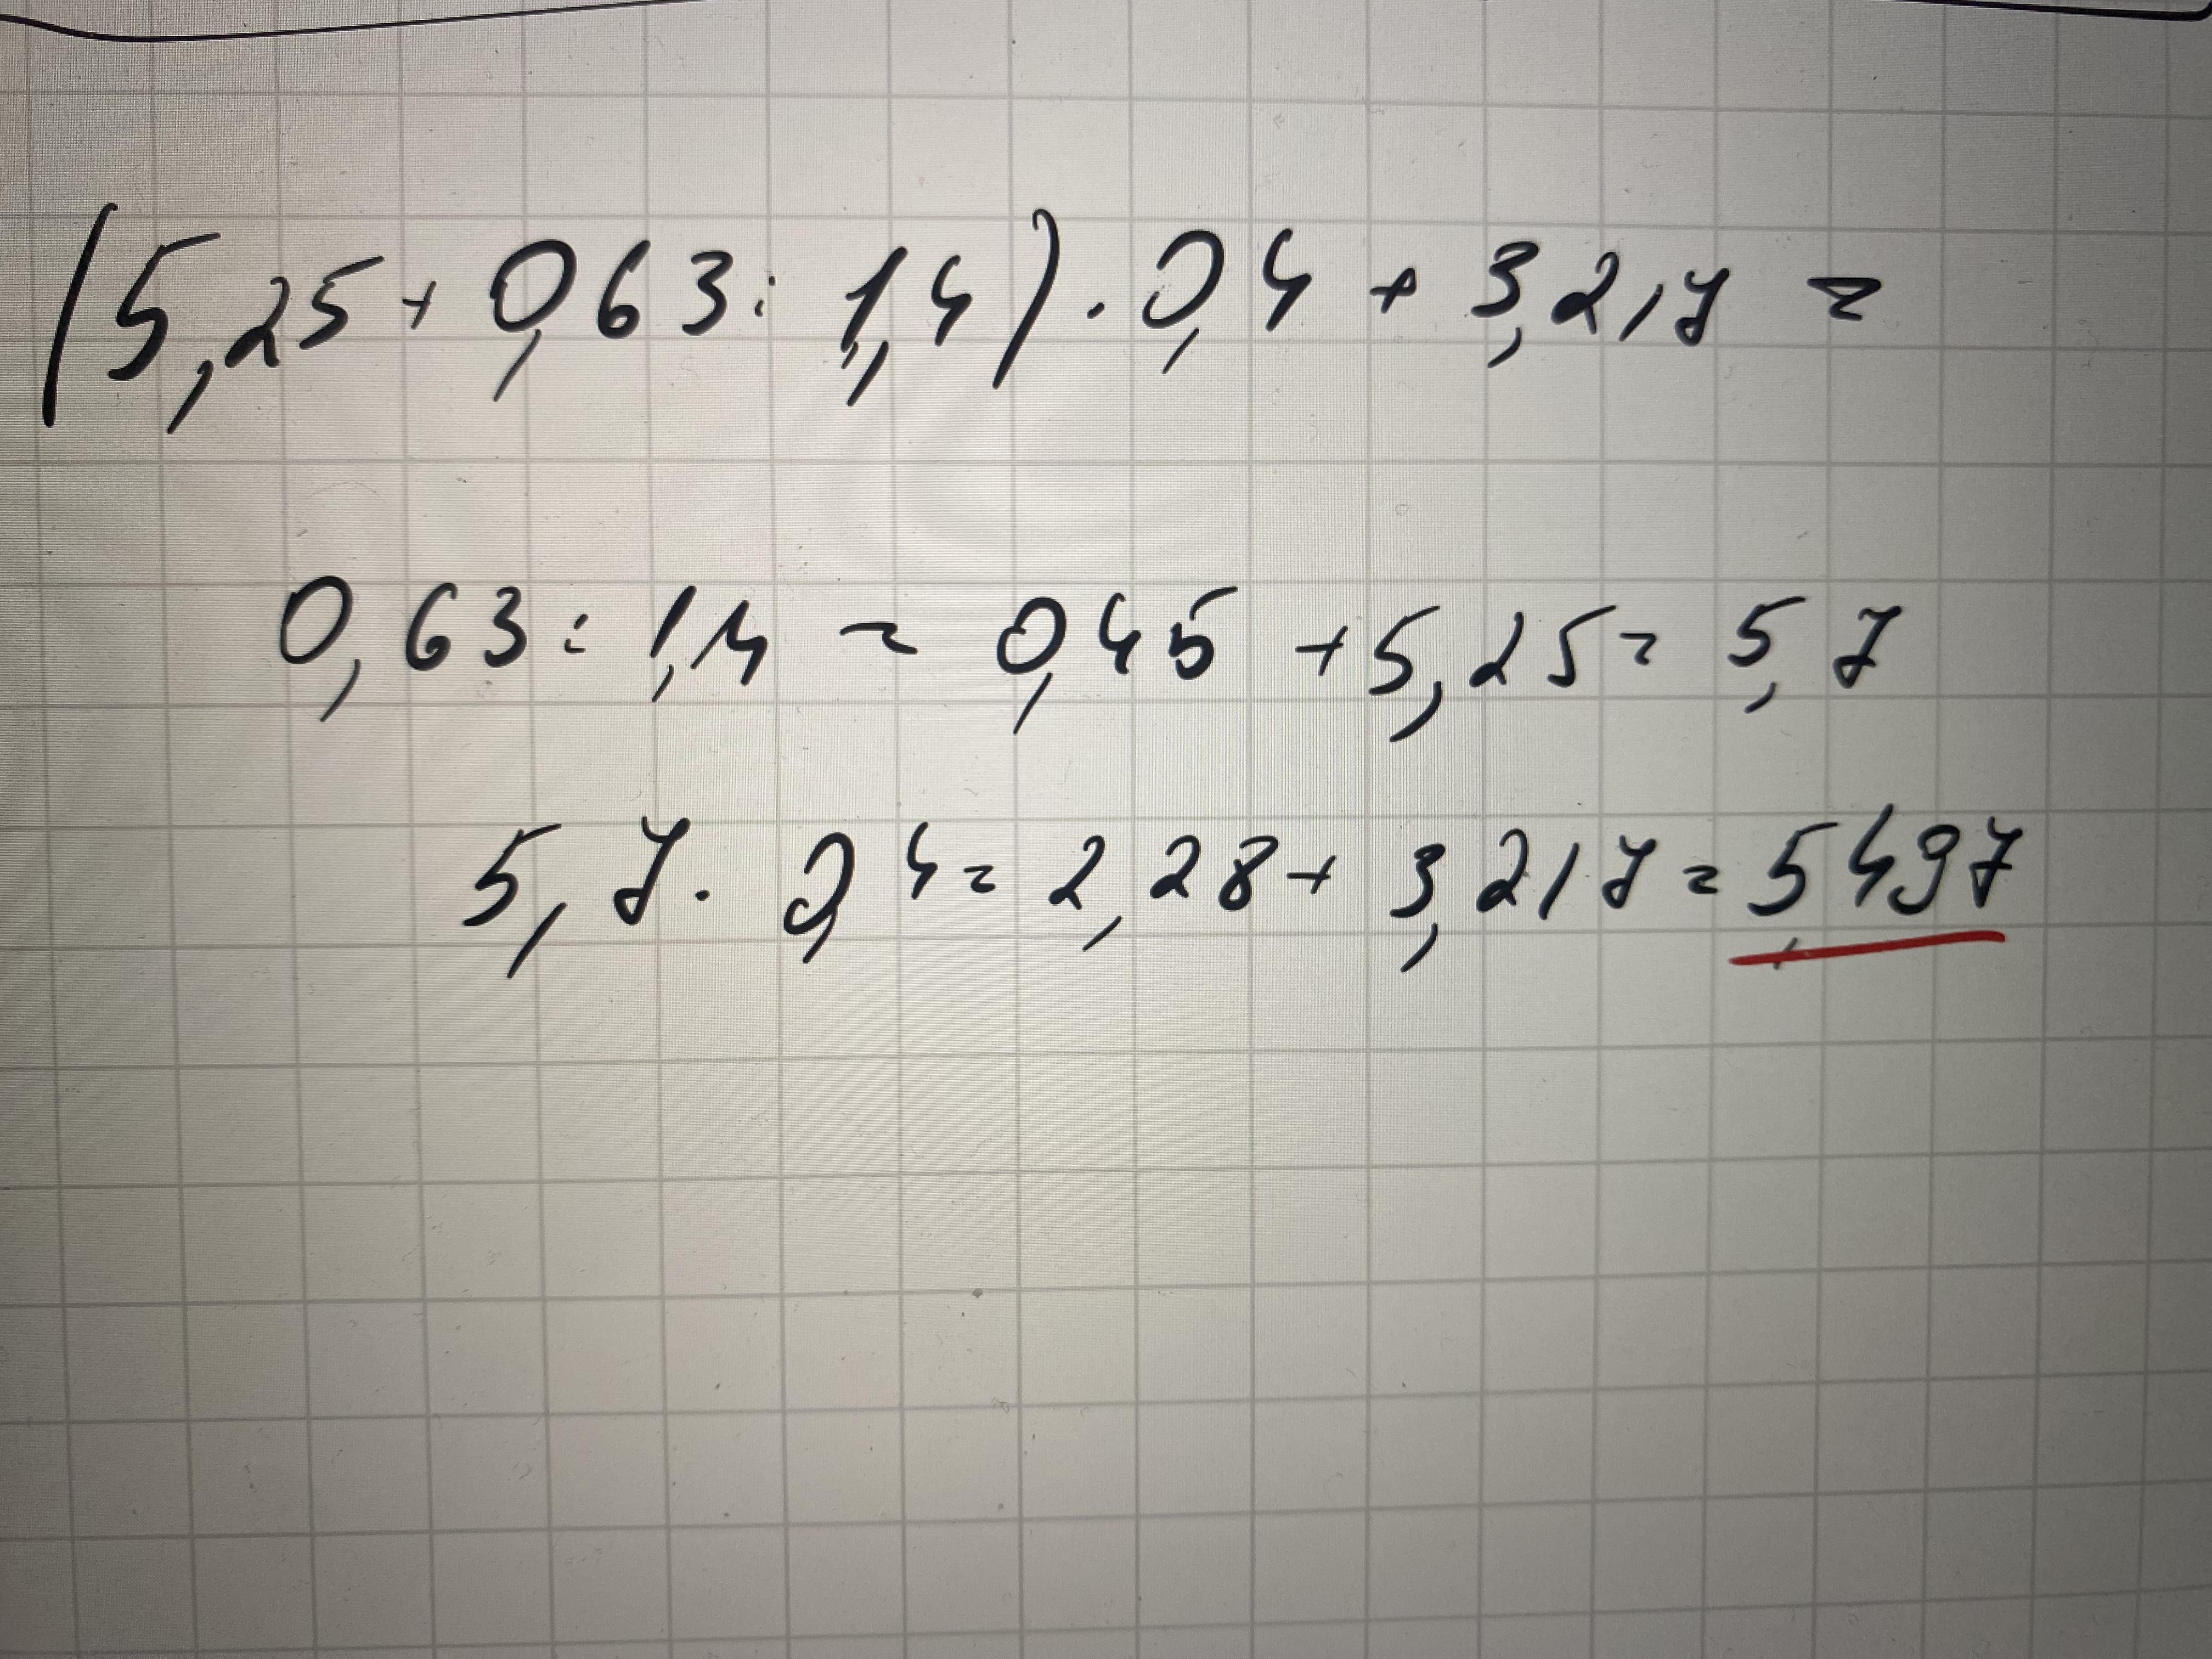 (5,25 + 0,63 : 1,4) · 0,4 + 3,217 =
0,63 : 1,4 = 0,45 + 5,25 = 5,7
5,7 · 0,4 = 2,28 + 3,217 = 5,497